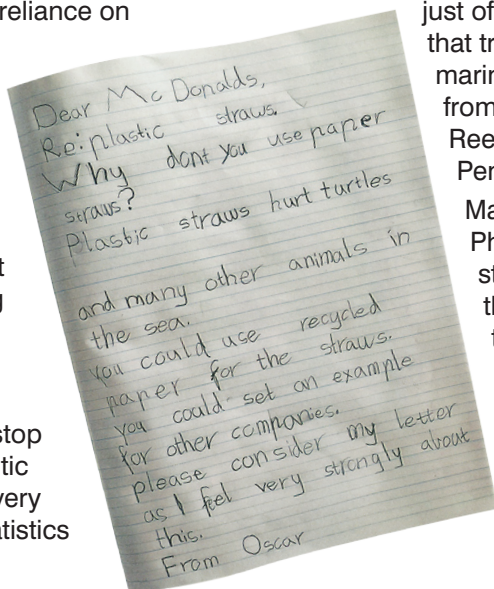 reliance on
t
g
stop
tic
very
tistics
Dear Mc Donalds,
Re: plastic straws.
Why dont you use paper
straws?
Plastic straws hurt turtles
and many other animals in
the sea.
you could use recycled
paper for the straws.
you could set an example
for other companies.
please consider my letter
as I feel very strongly about
this.
From Oscar
just of
that tr
marin
from
Ree
Per
Ma
Ph
st
th
t